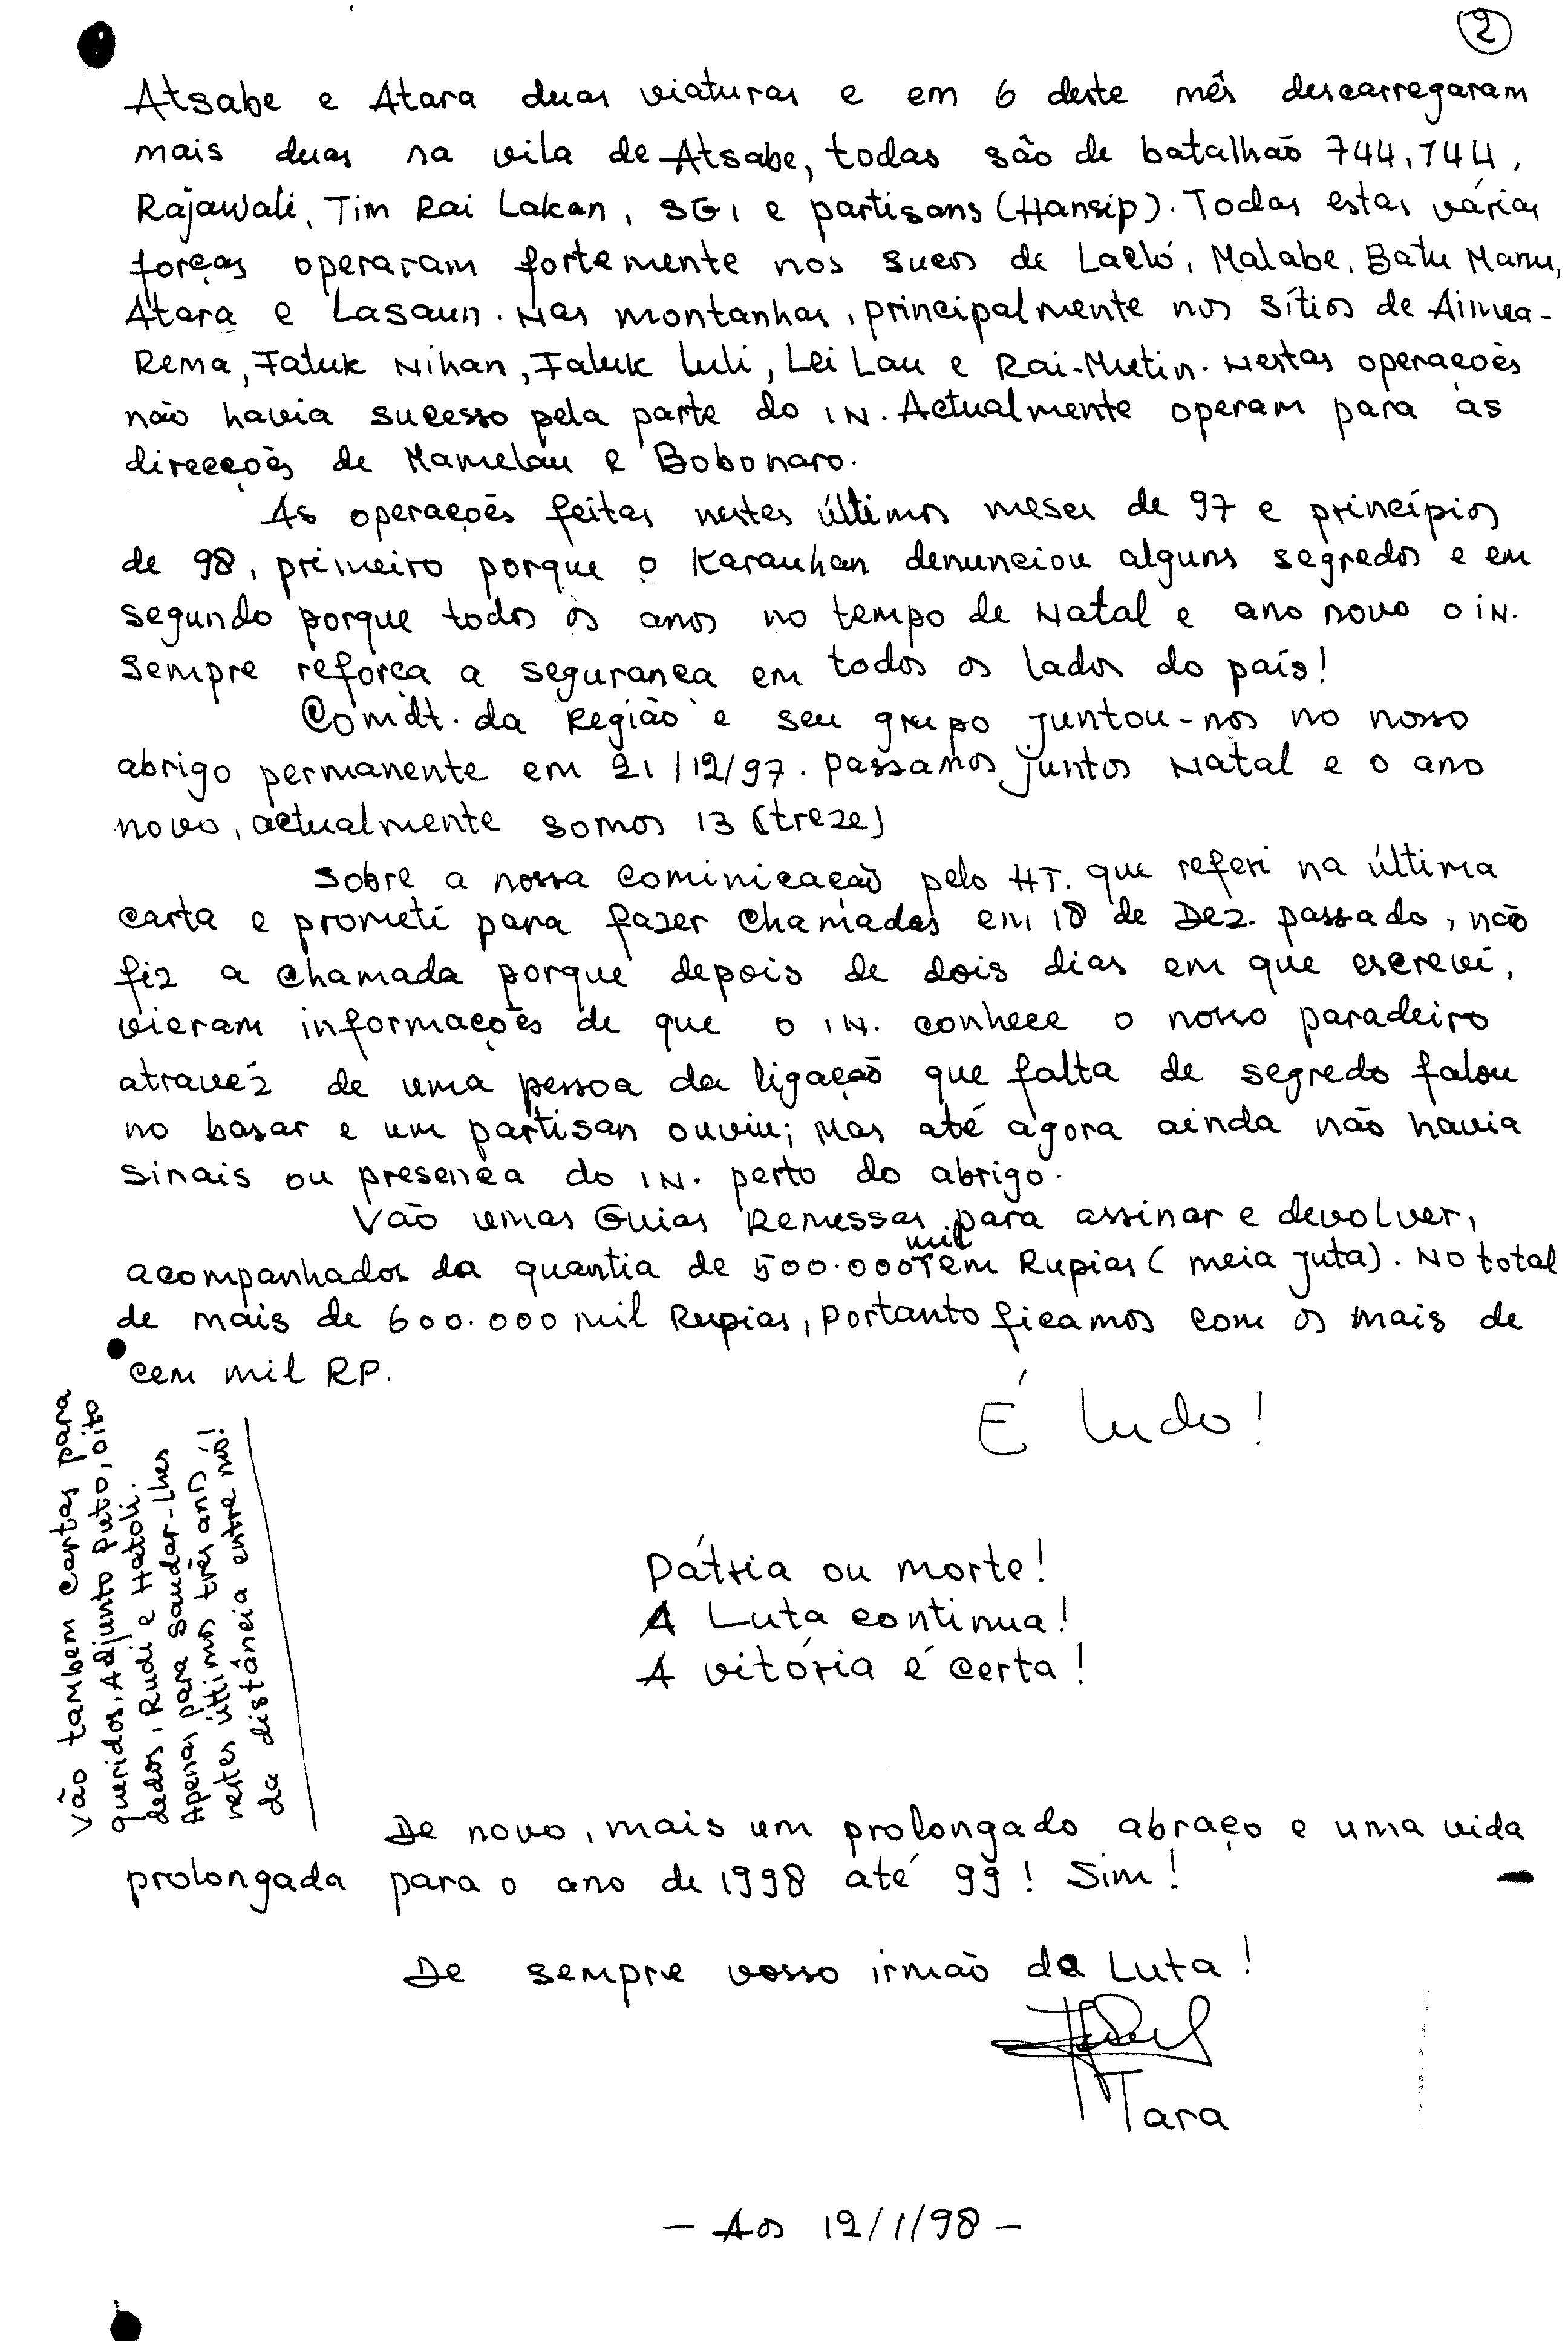 2
Atsabe e Atara duas viaturas e em 6 deste mês descarregaram
mais duas na vila de Atsabe, todas são de batalhão 744, 744,
Rajawali, Tim Rai Lakan, SGI e partisans (Hansip). Todas estas várias
forças operaram fortemente nos sucos de Laeló, Malabe, Batu Manu,
Atara e Lasaun. Nas montanhas, principalmente nos sítios de Aimea-
Rema, Fatuk Nihan, Fatuk Luli, Lei Lau e Rai-Mutin. Nestas operações
não havia sucesso pela parte do IN. Actualmente operam para as
direcções de Mamelau e Bobonaro.
As operações feitas nestes últimos meses de 97 e princípios
de 98, primeiro porque o Karauhan denunciou alguns segredos e em
segundo porque todos os anos no tempo de Natal e ano novo o IN.
sempre reforça a segurança em todos os lados do país!
Comdt. da Região e seu grupo juntou-nos no nosso
abrigo permanente em 21/12/97. passamos juntos Natal e o ano
novo, actualmente somos 13 (treze)
Sobre a nossa cominicação pelo HT. que referi na última
carta e prometi para fazer chamadas em 18 de Dez. passado, não
fiz a chamada porque depois de dois dias em que escrevi,
vieram informações de que o IN. conhece o nosso paradeiro
atravéz de uma pessoa da ligação que falta de segredo falou
no basar e um partisan ouviu; mas até agora ainda não havia
sinais ou presença do IN. perto do abrigo.
Vão umas Guias Remessas para assinar e devolver,
acompanhados da quantia de 500.000 mil Rupias (meia juta). No total
de mais de 600.000 mil Rupias, portanto ficamos com os mais de
cem mil RP.
É tudo!
Vão tambem cartas para
queridos, Adjunto Puto, oito
dedos, Rudi e Hatoli.
Apenas para saudar-lhes
nestes últimos três anos
da distância entre nós!
Pátria ou morte!
A Luta continua!
A vitória é certa!
De novo, mais um prolongado abraço e uma vida
prolongada para o ano de 1998 até 99! Sim!
De sempre vosso irmão da Luta!
Tara
- Aos 12/1/98 -